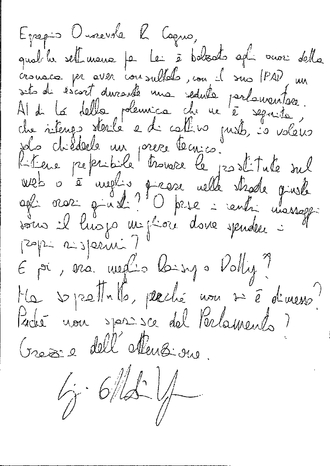 Egregio Onorevole R. Cagno,
qualche settimana fa Lei è balzato agli onori della
cronaca per aver consultato, con il suo IPAD un
sito di escort durante una seduta parlamentare.
Al di là della polemica che ne è seguita,
che ritengo sterile e di cattivo gusto, io volevo
solo chiederle un parere tecnico.
Ritiene preferibile trovare le prostitute sul
web o è meglio girare nelle strade giuste
agli orari giusti? O forse i centri massaggi
sono il luogo migliore dove spendere i
propri risparmi?
E poi, era meglio Daisy o Dolly?
Ma soprattutto, perché non si è dimesso?
Perché non sparisce dal Parlamento?
Grazie dell'attenzione.